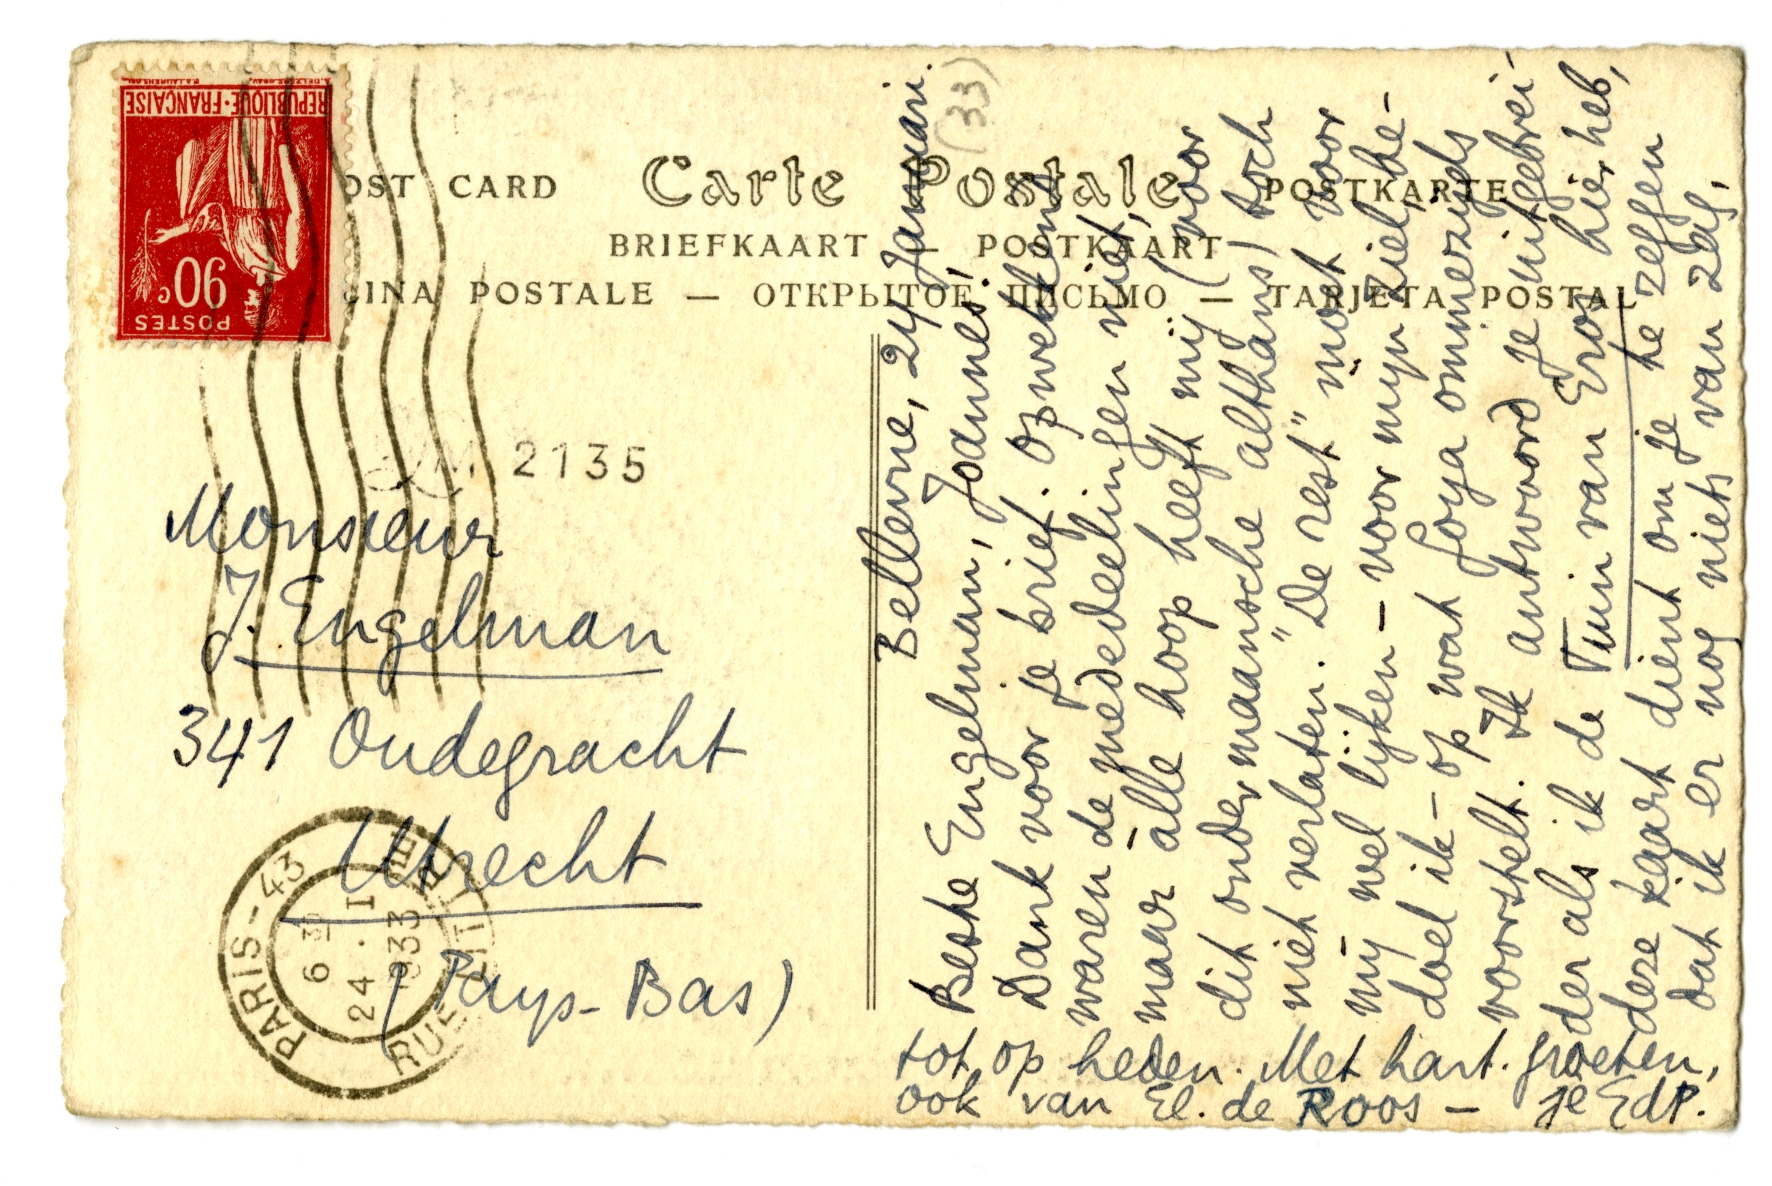 REPUBLIQUE·FRANÇAISE
90c
POSTES
OST CARD Carte Postale POSTKARTE
BRIEFKAART — POSTKAART
GINA POSTALE — ОТКРЫТОЕ ПИСЬМО — TARJETA POSTAL
2135
Monsieur
J. Engelman
341 Oudegracht
Utrecht
(Pays-Bas)
PARIS-43
6 3
24 · I
1933
RUE
Bellevue, 24 Januari.
(33)
Beste Engelman, Joannes,
Dank voor je brief. Opwekkend
waren de mededeelingen niet,
maar alle hoop heeft mij (voor
dit ondermaansche althans) toch
niet verlaten. "De rest" moet voor
mij wel lijken — voor mijn ziel, be-
doel ik — op wat Goya ommezijds
voorstelt. Ik antwoord je uitgebrei-
der als ik de Tuin van Eros hier heb,
deze kaart dient om je te zeggen
dat ik er nog niets van zag,
tot op heden. Met hart. groeten,
ook van El. de Roos — je EdP.